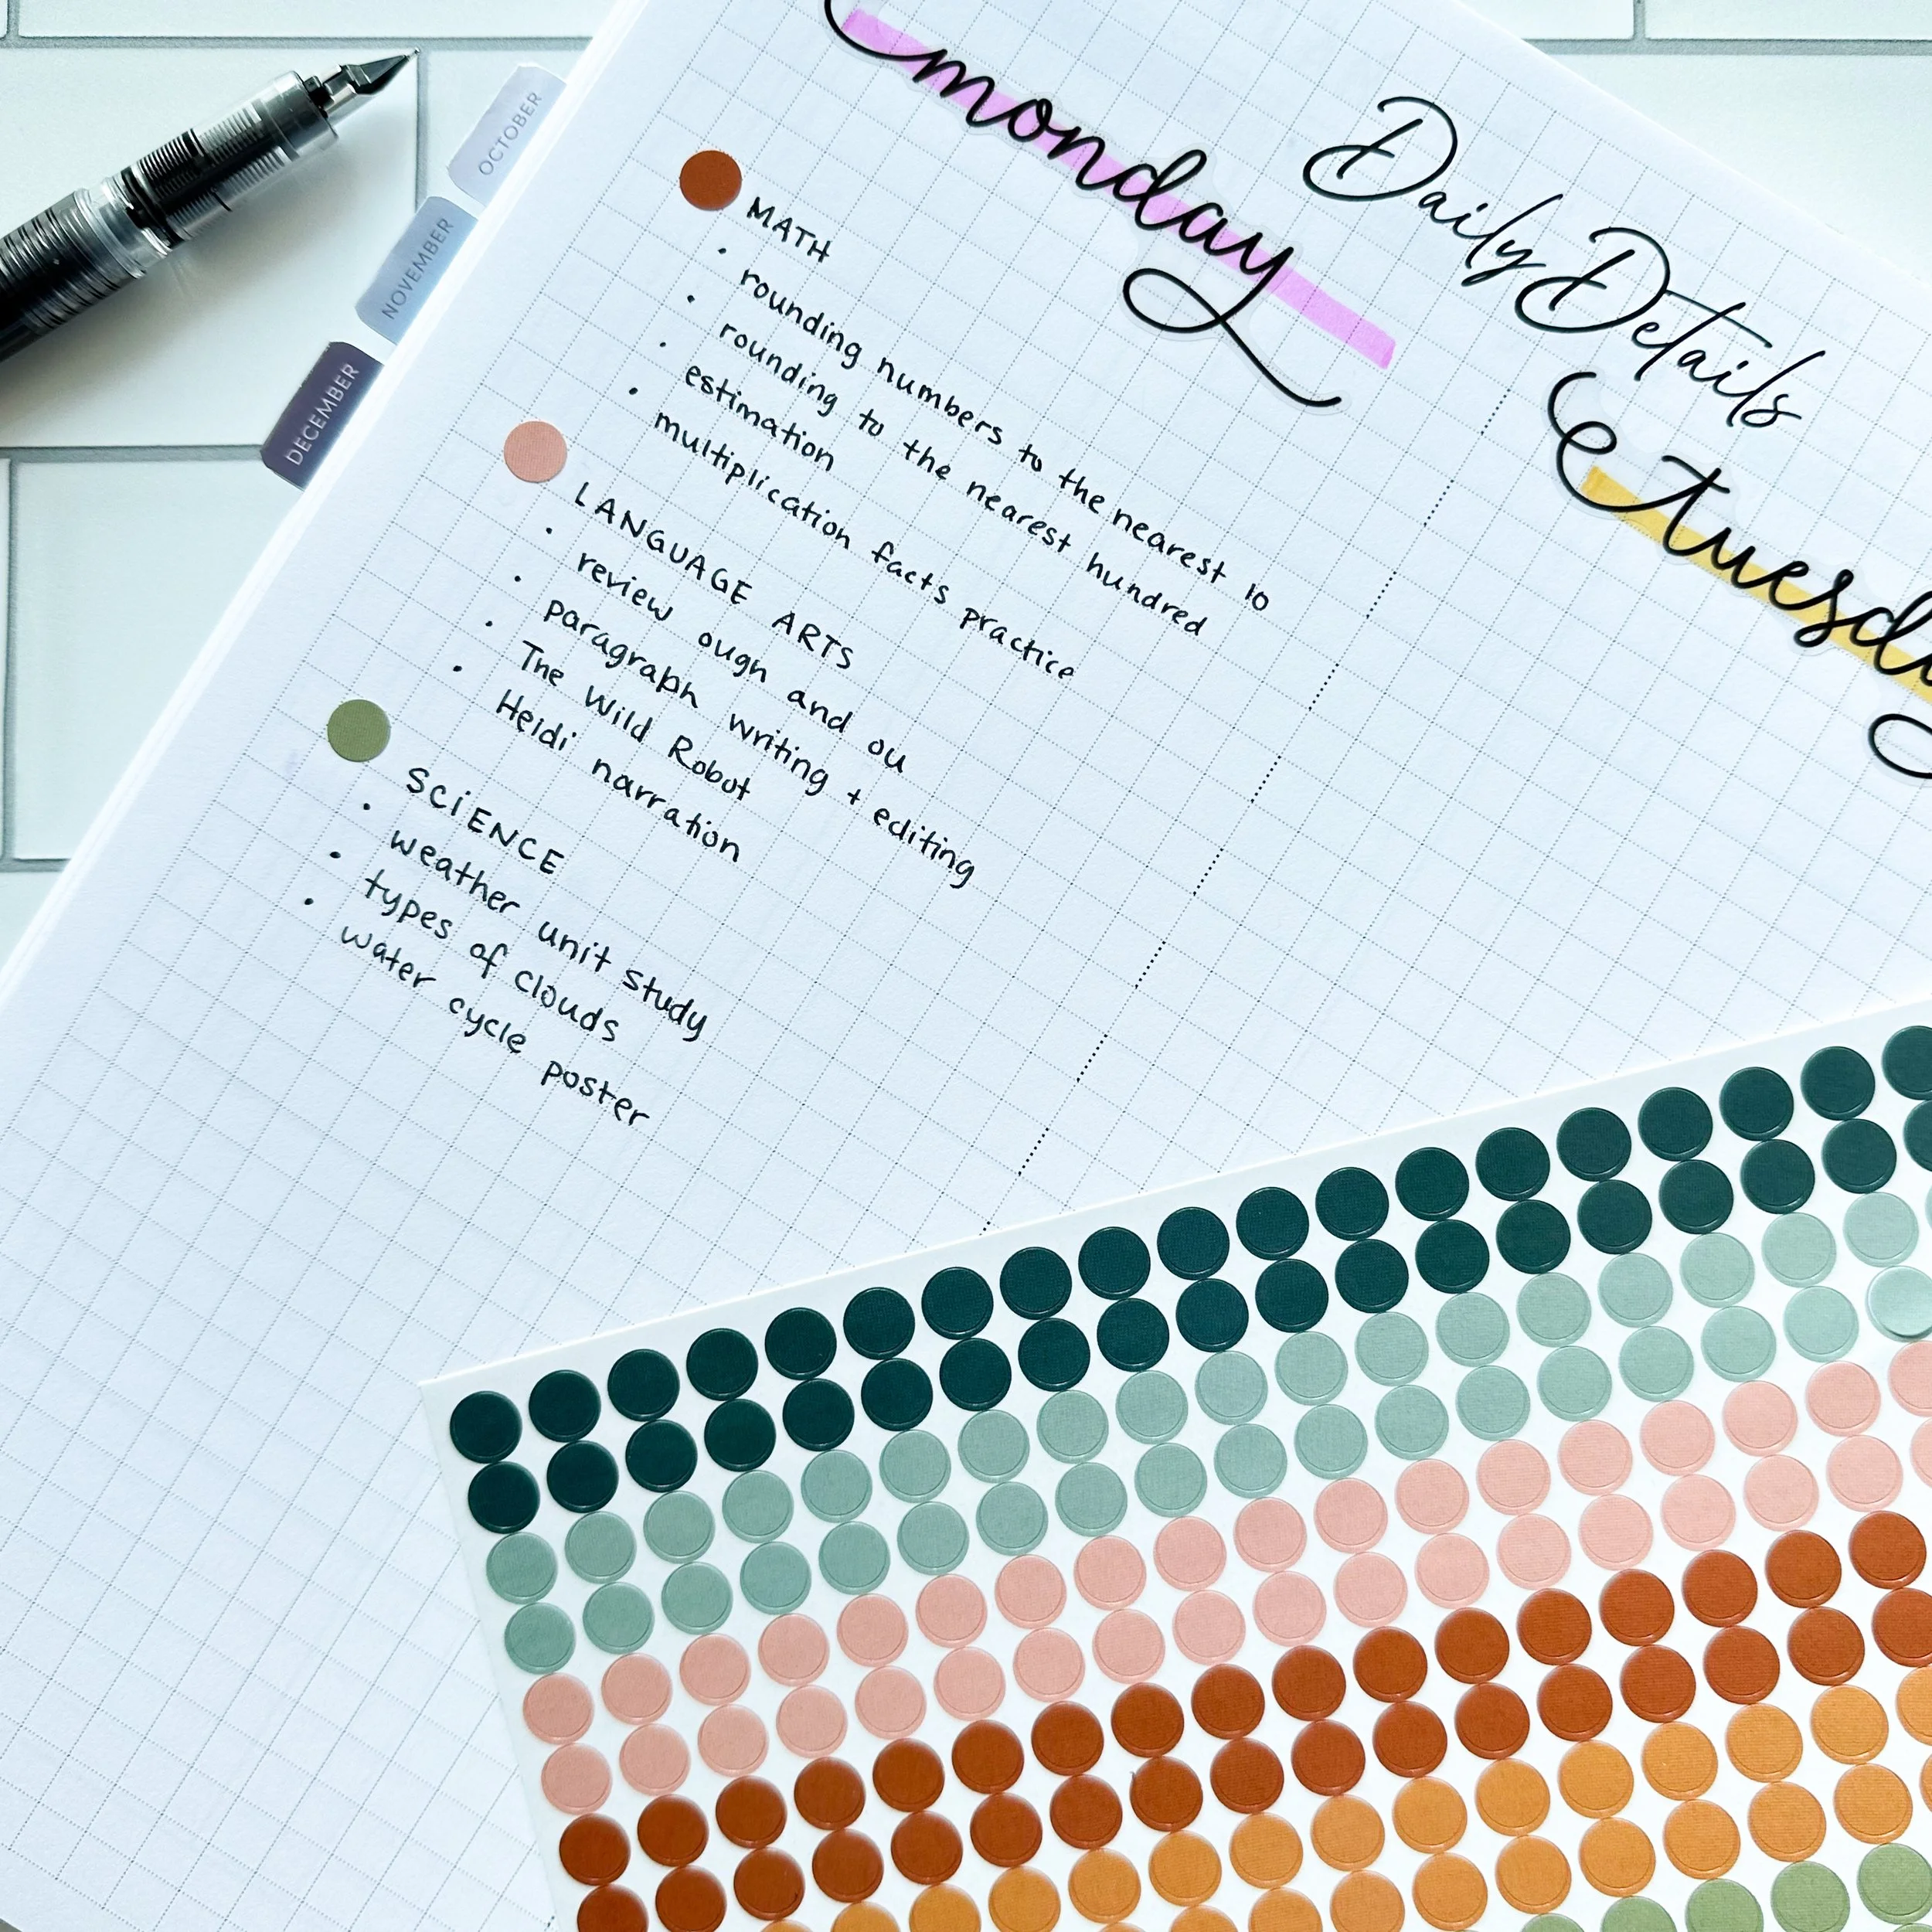 Daily Details
monday
MATH
• rounding numbers to the nearest 10
• rounding to the nearest hundred
• estimation
• multiplication facts practice
LANGUAGE ARTS
• review ough and ou
• paragraph writing + editing
• The Wild Robot
• Heidi narration
SCiENCE
• weather unit study
• types of clouds
• water cycle poster
OCTOBER
NOVEMBER
DECEMBER